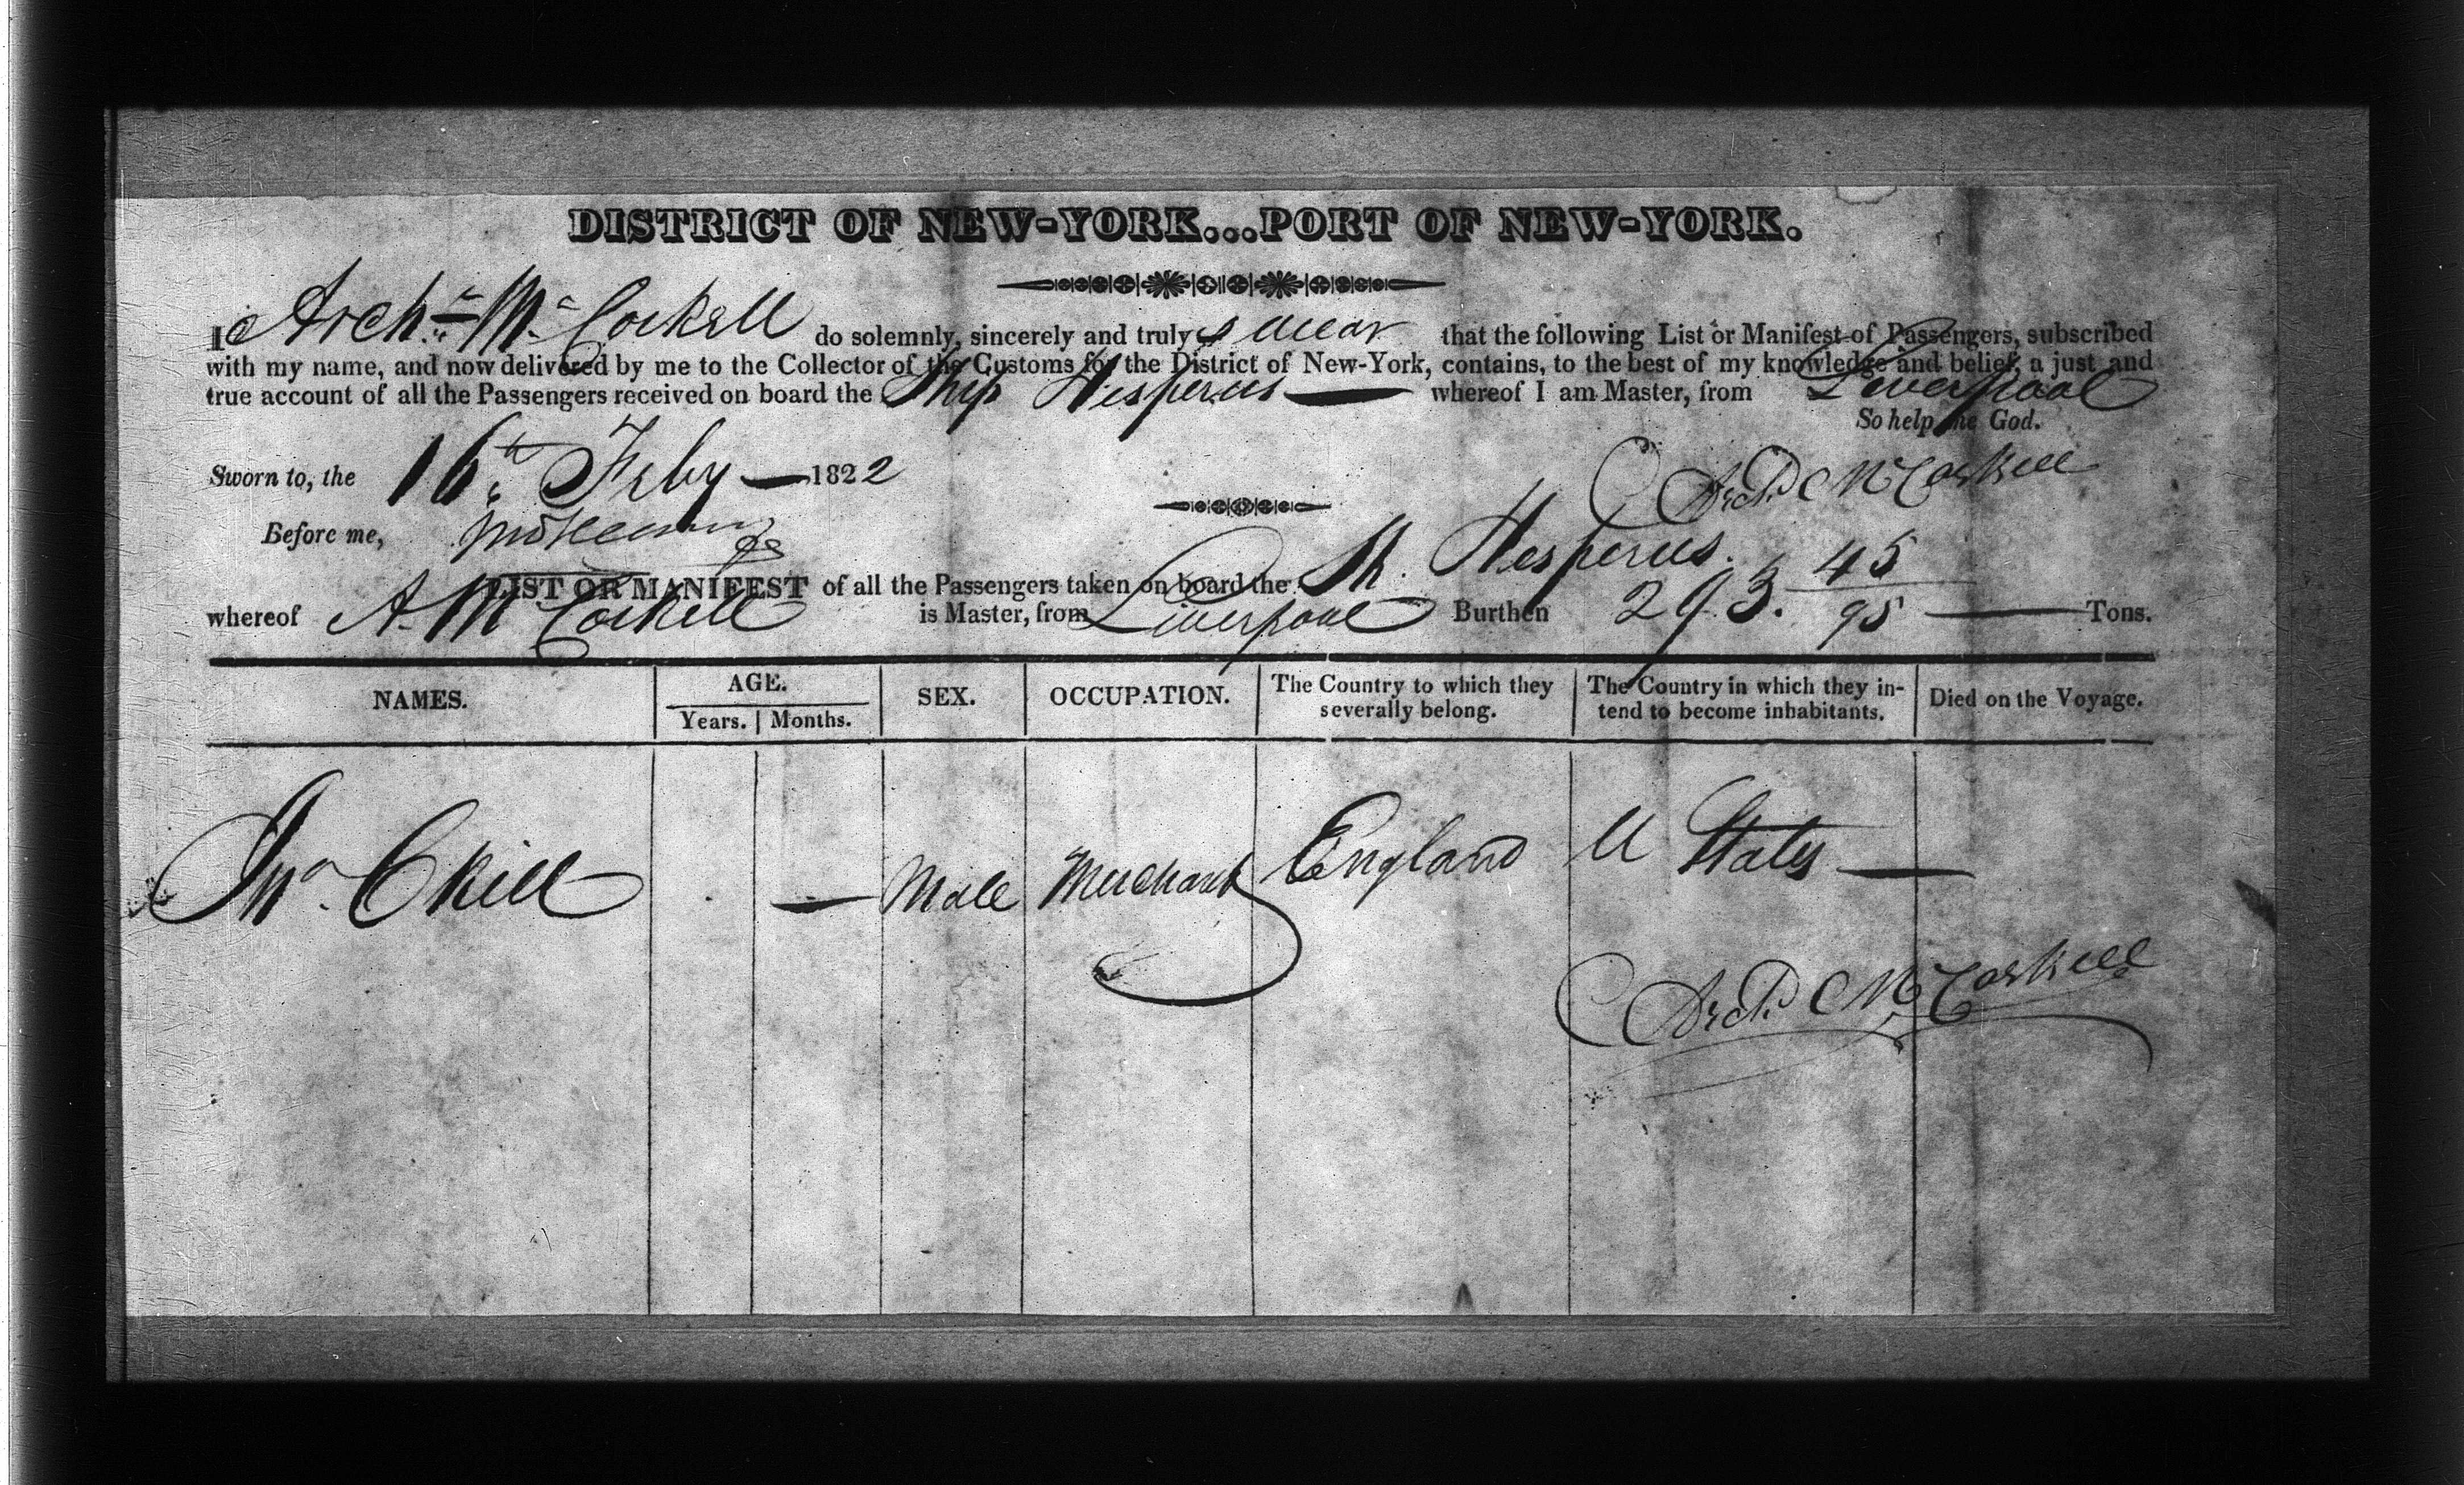 DISTRICT OF NEW-YORK...PORT OF NEW-YORK.
I Archd. McCorkell do solemnly, sincerely and truly swear that the following List or Manifest of Passengers, subscribed
with my name, and now delivered by me to the Collector of the Customs for the District of New-York, contains, to the best of my knowledge and belief, a just and
true account of all the Passengers received on board the Ship Hesperus — whereof I am Master, from Liverpool
So help me God.
Sworn to, the 16th Feby — 1822
Archd McCorkell
Before me,
LIST OR MANIFEST of all the Passengers taken on board the Sh. Hesperus.
whereof A. McCorkell is Master, from Liverpool Burthen 293. 45/95 — Tons.
NAMES. AGE. SEX. OCCUPATION. The Country to which they severally belong. The Country in which they intend to become inhabitants. Died on the Voyage.
Years. Months.
Jno. Okill — Male Merchant England U States —
Archd McCorkell